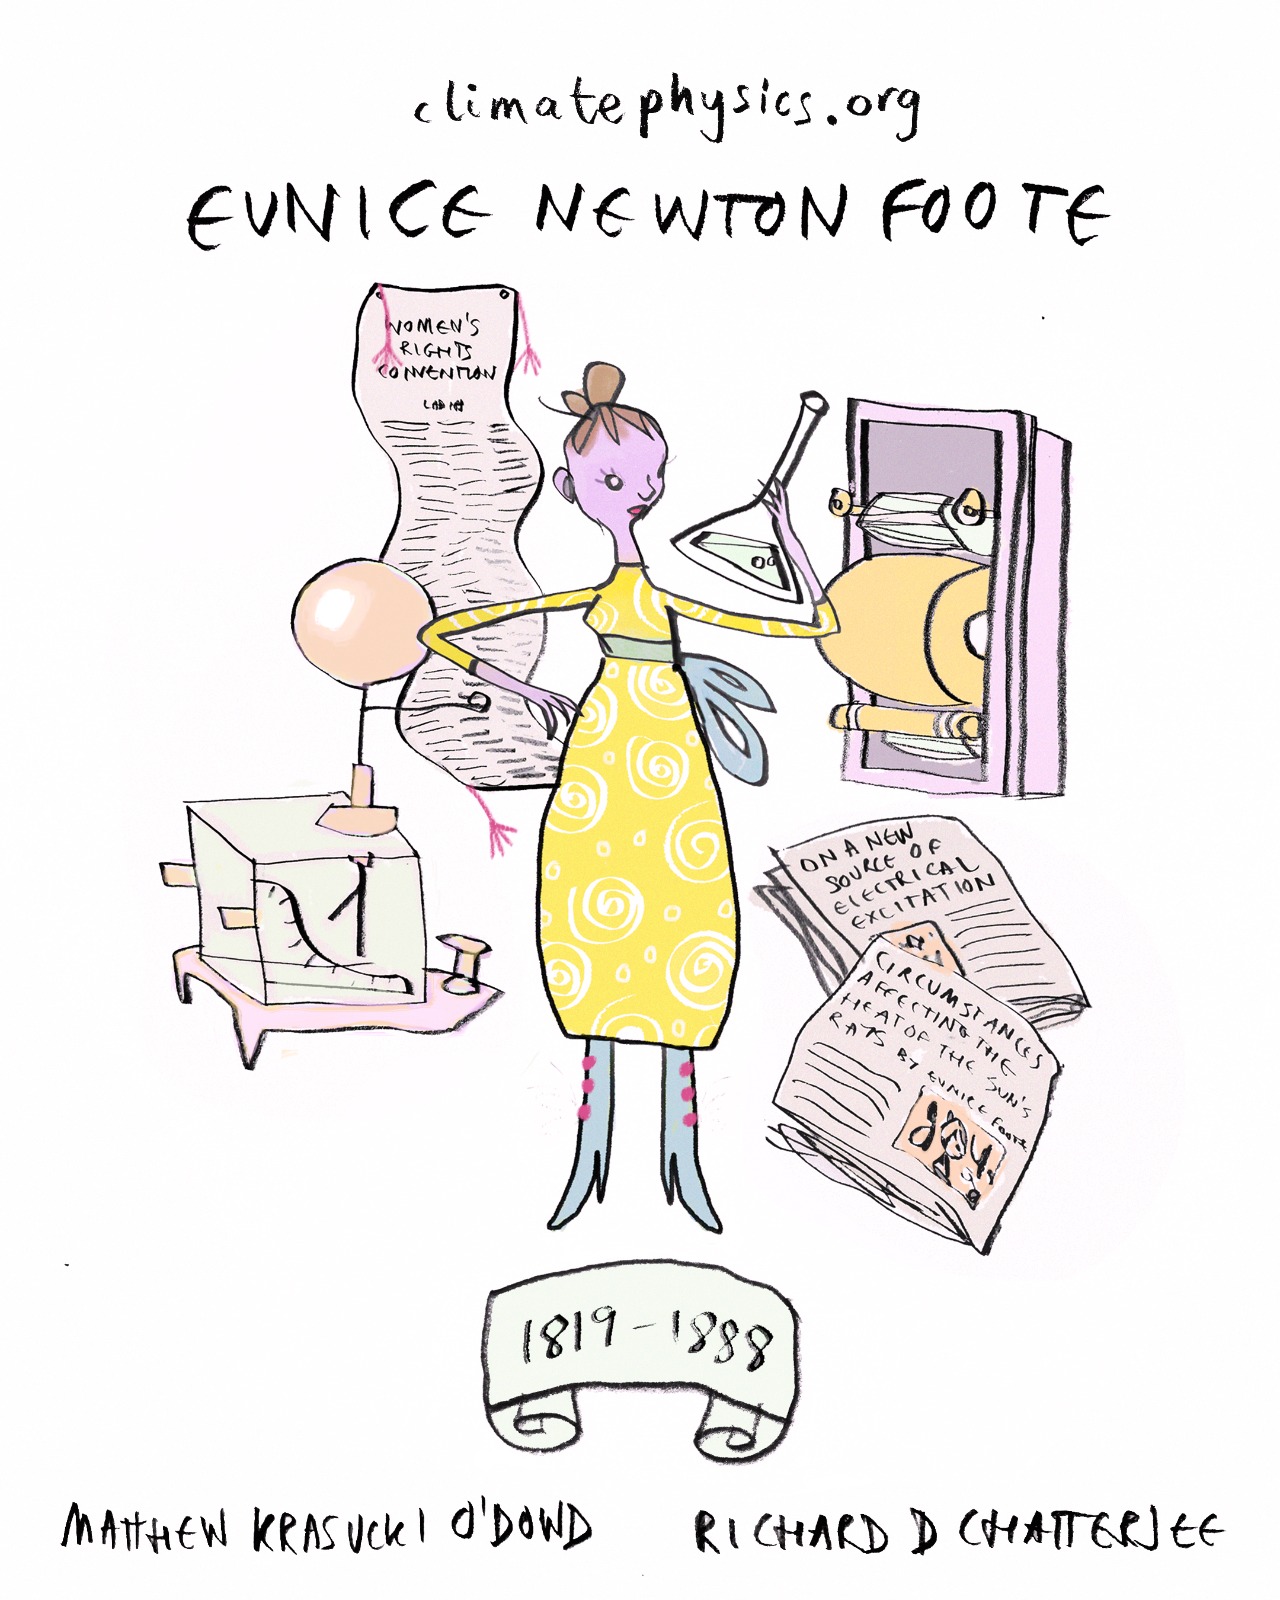 climatephysics.org
EUNICE NEWTON FOOTE
WOMEN'S
RIGHTS
CONVENTION
ON A NEW
SOURCE OF
ELECTRICAL
EXCITATION
CIRCUMSTANCES
AFFECTING THE
HEAT OF THE SUN'S
RAYS BY EUNICE FOOTE
1819-1888
MATTHEW KRASUCKI O'DOWD
RICHARD D CHATTERJEE